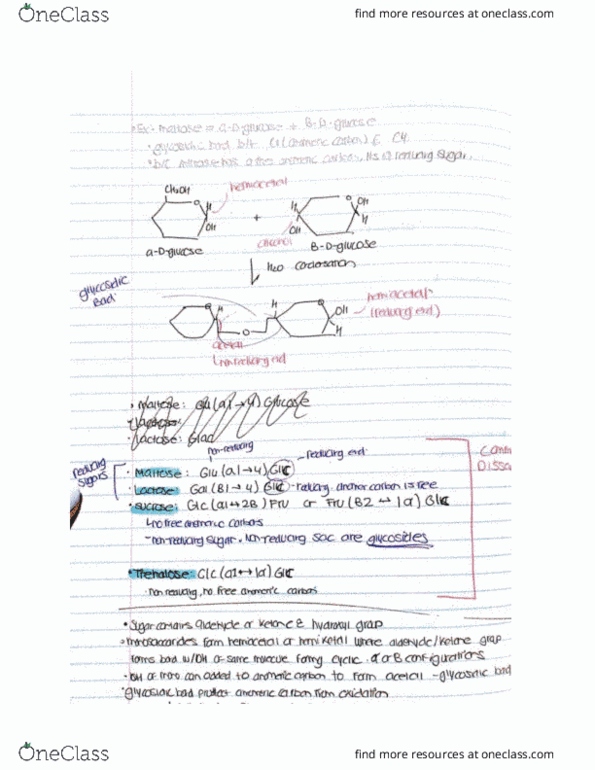 OneClass
find more resources at oneclass.com
Ex: maltose = a-D-glucose + B-D-glucose
glycosidic bad b/t C1 (anomeric carbon) & C4
b/c maltose has a free anomeric carbon, its a reducing sugar.
CH2OH
hemiacetal
O
H
OH
+
H
OH
O
OH
H
alcohol
a-D-glucose
B-D-glucose
H2O
glycosidic
Bad
hemiacetal
(reducing end)
H
O
H
OH
H
acetal
nonreducing end
Maltose: Glu (a1→4) Glucose
Lactose: Glac
non-reducing
reducing end
reducing
sugars
Maltose: Glu (a1→4) Glc
Lactose: Gal (B1→4) Glc - reducing anomer carbon is free
Sucrose: Glc (a1↔2B) Fru or Fru (B2 ↔ 1a) Glc
no free anomeric carbons
non-reducing sugar. Non reducing sac are glycosides
Trehalose: Glc (a1↔1a) Glc
non reducing, no free anomeric carbons
Comm
Dissa
Sugar contains aldehyde or ketone & hydroxyl grap
monosaccarides form hemiacetal or hemiketal where aldehyde/ketone grap
forms bad w/OH of same molecule formg cyclic a or B configurations
can added to anomeric carbon to form acetal - glycosidic bad
glycosidic bad protect anomeric carbon from oxidation
OneClass
find more resources at oneclass.com